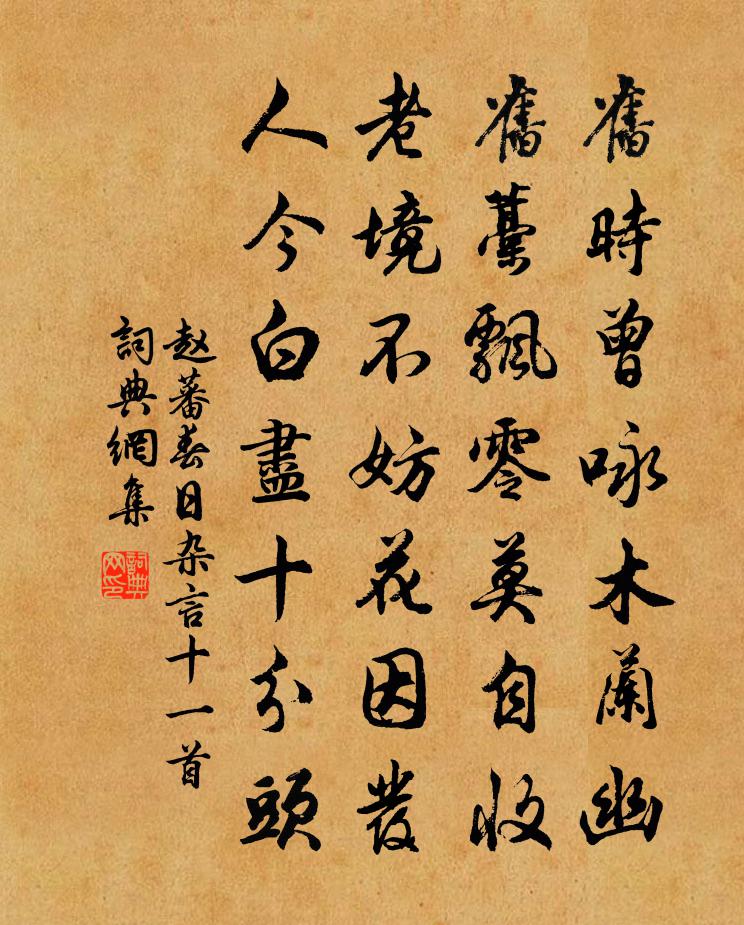 舊時曾咏木蘭幽
舊藁飄零莫自收
老境不妨花因發
人今白盡十分頭
赵蕃春日杂言十一首
詞典網集
詞典
网印